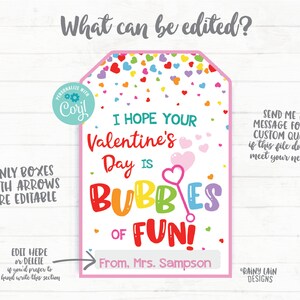 What can be edited?
PERSONALIZE WITH
Corjl
I HOPE YOUR
Valentine's
Day IS
BUBBLES
OF FUN!
From, Mrs. Sampson
ONLY BOXES
WITH ARROWS
ARE EDITABLE
EDIT HERE
or DELETE
if you'd prefer to
hand write this section
SEND ME
MESSAGE FO
CUSTOM QU
if this file do
meet your ne
*RAINY LAIN
DESIGNS